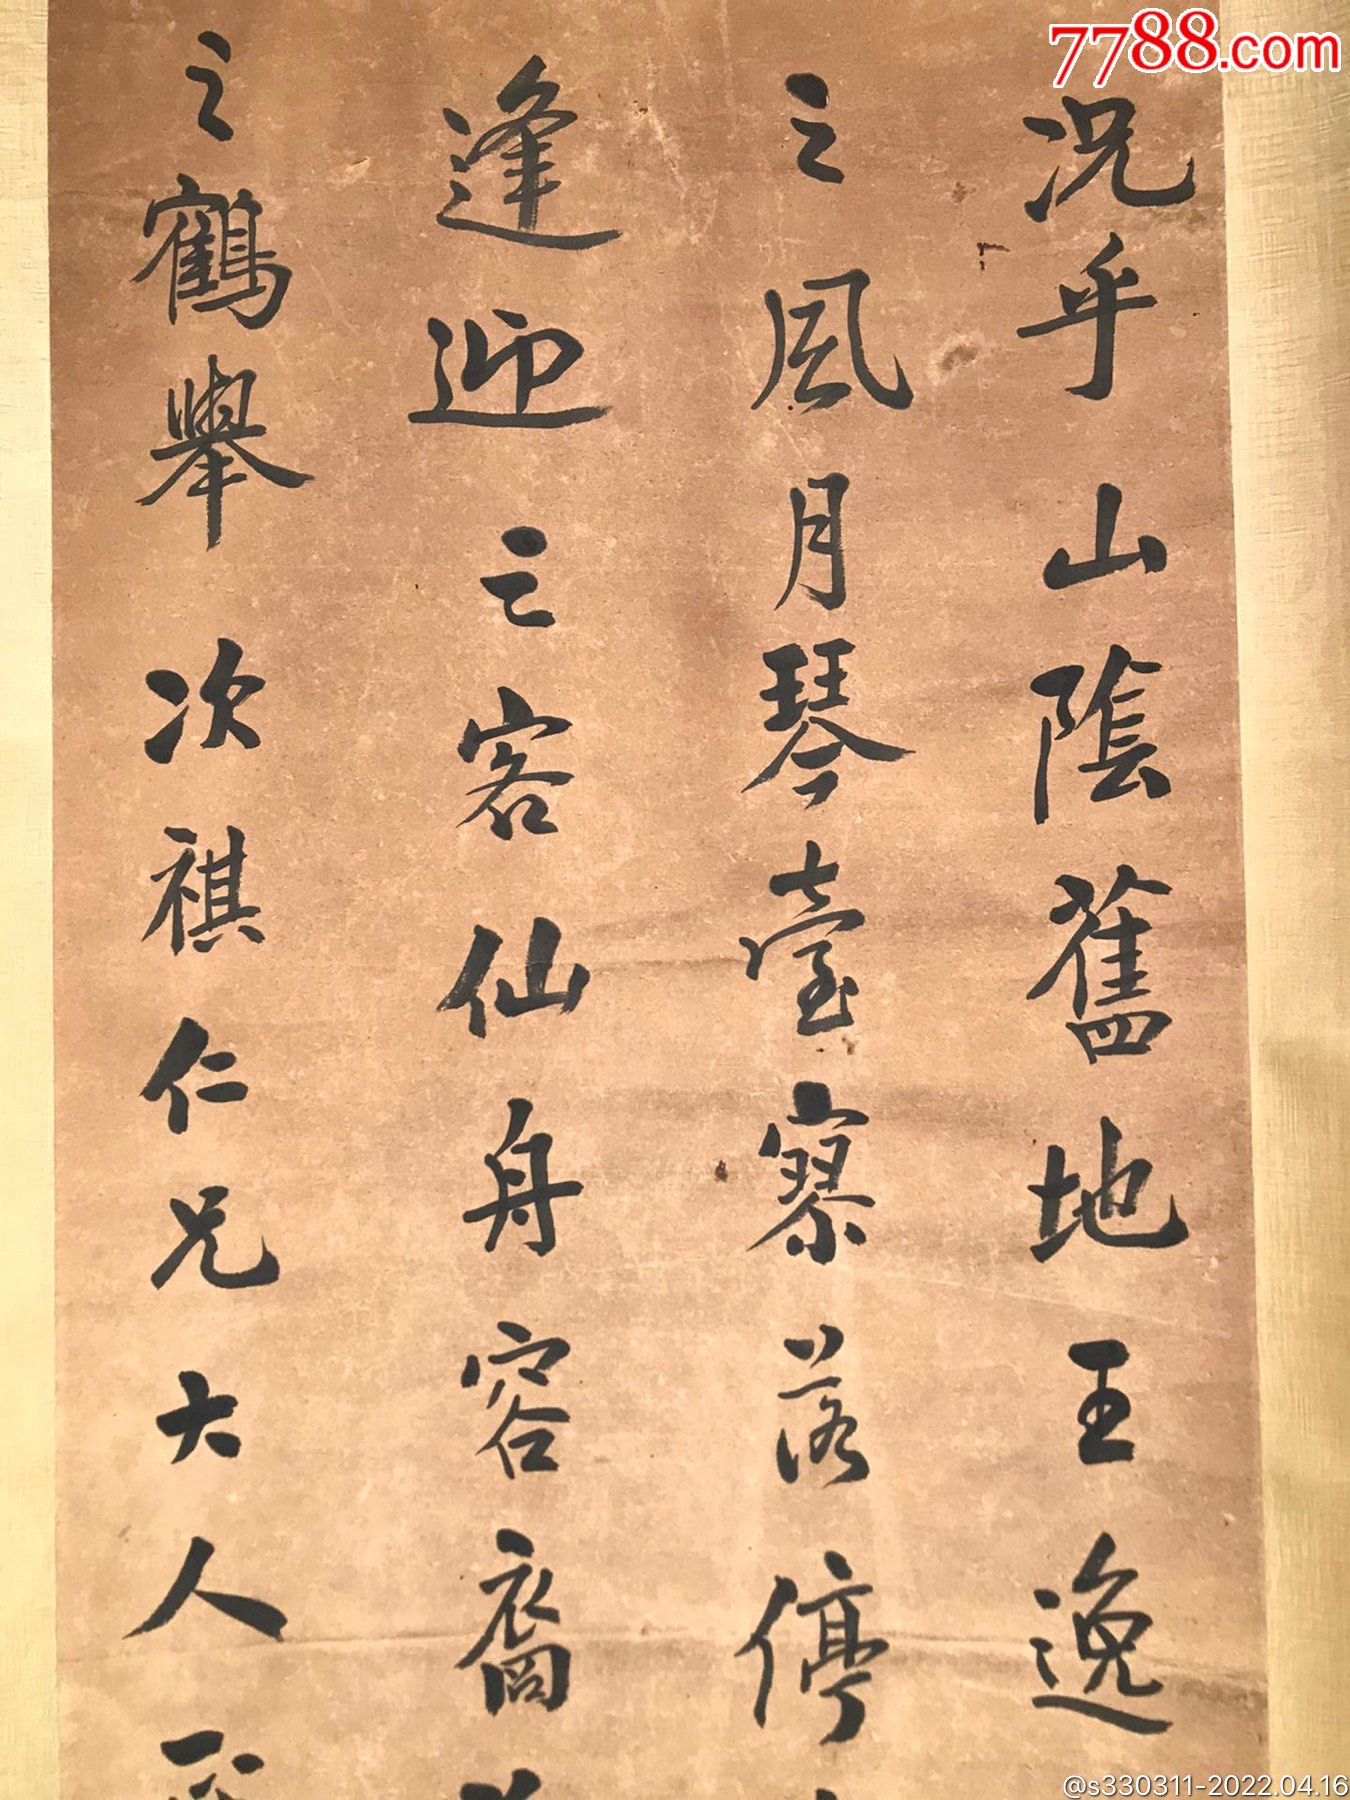 7788.com
况乎山陰舊地王逸
之風月琴臺寥落停
逢迎之客仙舟容裔
之鶴舉 次祺仁兄大人
@s330311-2022.04.16